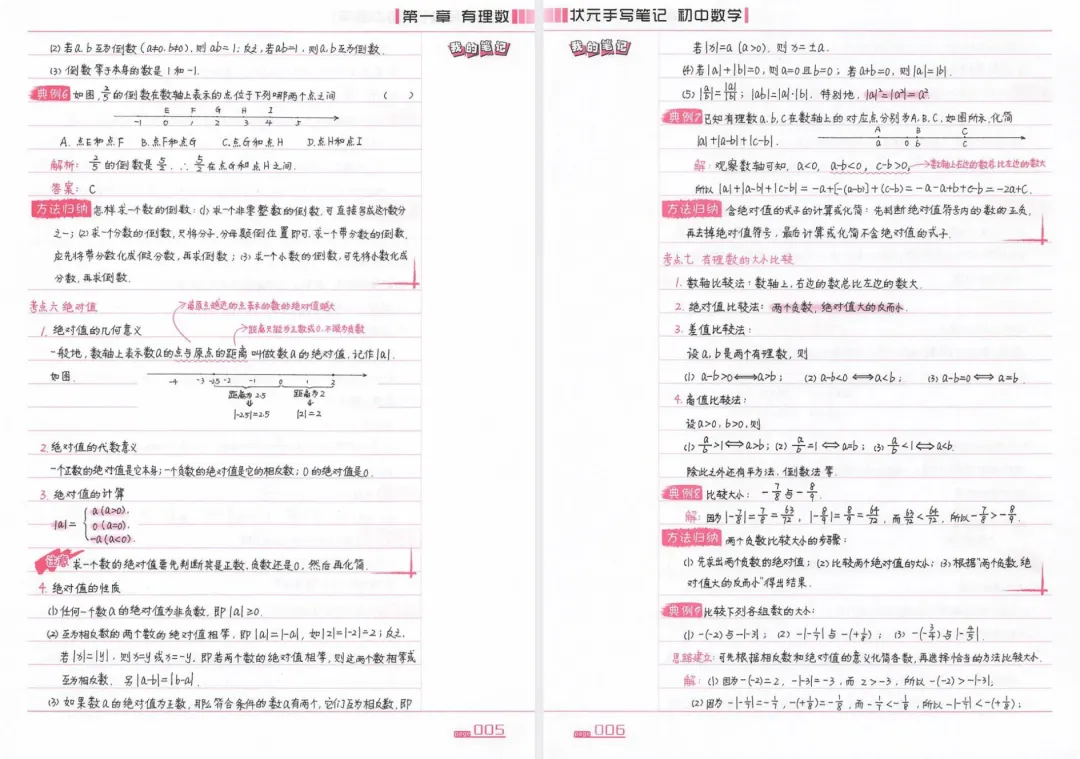 第一章 有理数
我的笔记
(2) 若a、b互为倒数(a≠0、b≠0), 则ab=1; 反之, 若ab=1, 则a、b互为倒数.
(3) 倒数等于本身的数是1和-1.
典例6 如图, 2/5的倒数在数轴上表示的点位于下列哪两个点之间 ( )
E F G H I
-1 0 1 2 3 4 5
A. 点E和点F B. 点F和点G C. 点G和点H D. 点H和点I
解析: 2/5的倒数是5/2. ∴5/2在点G和点H之间.
答案: C
方法归纳 怎样求一个数的倒数: (1) 求一个非零整数的倒数, 可直接写成这个数分
之一; (2) 求一个分数的倒数, 只将分子、分母颠倒位置即可. 求一个带分数的倒数,
应先将带分数化成假分数, 再求倒数; (3) 求一个小数的倒数, 可先将小数化成
分数, 再求倒数.
考点六 绝对值
离原点越远的点表示的数的绝对值越大
1. 绝对值的几何意义
距离只能为正数或0, 不能为负数
一般地, 数轴上表示数a的点与原点的距离叫做数a的绝对值. 记作|a|.
如图.
-4 -3 -2.5 -2 -1 0 1 2
距离为2.5 距离为2
|-2.5|=2.5 |2|=2
2. 绝对值的代数意义
一个正数的绝对值是它本身; 一个负数的绝对值是它的相反数; 0的绝对值是0.
3. 绝对值的计算
|a|= { a (a>0).
0 (a=0).
-a (a<0).
注意 求一个数的绝对值要先判断其是正数、负数还是0, 然后再化简.
4. 绝对值的性质
(1) 任何一个数a的绝对值为非负数, 即|a|≥0.
(2) 互为相反数的两个数的绝对值相等, 即|a|=|-a|, 如|2|=|-2|=2; 反之,
若|x|=|y|, 则x=y或x=-y. 即若两个数的绝对值相等, 则这两个数相等或
互为相反数. 另|a-b|=|b-a|.
(3) 如果数a的绝对值为正数, 那么符合条件的数a有两个, 它们互为相反数, 即
page 005
状元手写笔记 初中数学
我的笔记
若|x|=a (a>0). 则x=±a.
(4) 若|a|+|b|=0, 则a=0且b=0; 若a+b=0, 则|a|=|b|.
(5) |a/b|=|a|/|b|; |ab|=|a|·|b|. 特别地, |a|²=|a²|=a².
典例7 已知有理数a、b、c在数轴上的对应点分别为A、B、C, 如图所示, 化简
|a|+|a-b|+|c-b|.
A B C
a 0 b c
解: 观察数轴可知, a<0, a-b<0, c-b>0, 数轴上右边的数总比左边的数大
所以|a|+|a-b|+|c-b|=-a+[-(a-b)]+(c-b)=-a-a+b+c-b=-2a+c.
方法归纳 含绝对值的式子的计算或化简: 先判断绝对值符号内的数的正负,
再去掉绝对值符号, 最后计算或化简不含绝对值的式子.
考点七 有理数的大小比较
1. 数轴比较法: 数轴上, 右边的数总比左边的数大.
2. 绝对值比较法: 两个负数, 绝对值大的反而小.
3. 差值比较法:
设a, b是两个有理数, 则
(1) a-b>0⟺a>b; (2) a-b<0⟺a<b; (3) a-b=0⟺a=b.
4. 商值比较法:
设a>0, b>0, 则
(1) a/b>1⟺a>b; (2) a/b=1⟺a=b; (3) a/b<1⟺a<b.
除此之外还有平方法、倒数法等.
典例8 比较大小: -7/8与-8/9.
解: 因为|-7/8|=7/8=63/72, |-8/9|=8/9=64/72, 而63/72<64/72, 所以-7/8>-8/9.
方法归纳 两个负数比较大小的步骤:
(1) 先求出两个负数的绝对值; (2) 比较两个绝对值的大小; (3) 根据“两个负数, 绝
对值大的反而小”得出结果.
典例9 比较下列各组数的大小:
(1) -(-2)与-|-3|; (2) -|-1/7|与-(+1/8); (3) -(-3/4)与|-4/5|.
思路建立: 可先根据相反数和绝对值的意义化简各数, 再选择恰当的方法比较大小.
解: (1) 因为-(-2)=2, -|-3|=-3, 而2>-3, 所以-(-2)>-|-3|;
(2) 因为-|-1/7|=-1/7, -(+1/8)=-1/8, 而-1/7<-1/8, 所以-|-1/7|<-(+1/8);
page 006